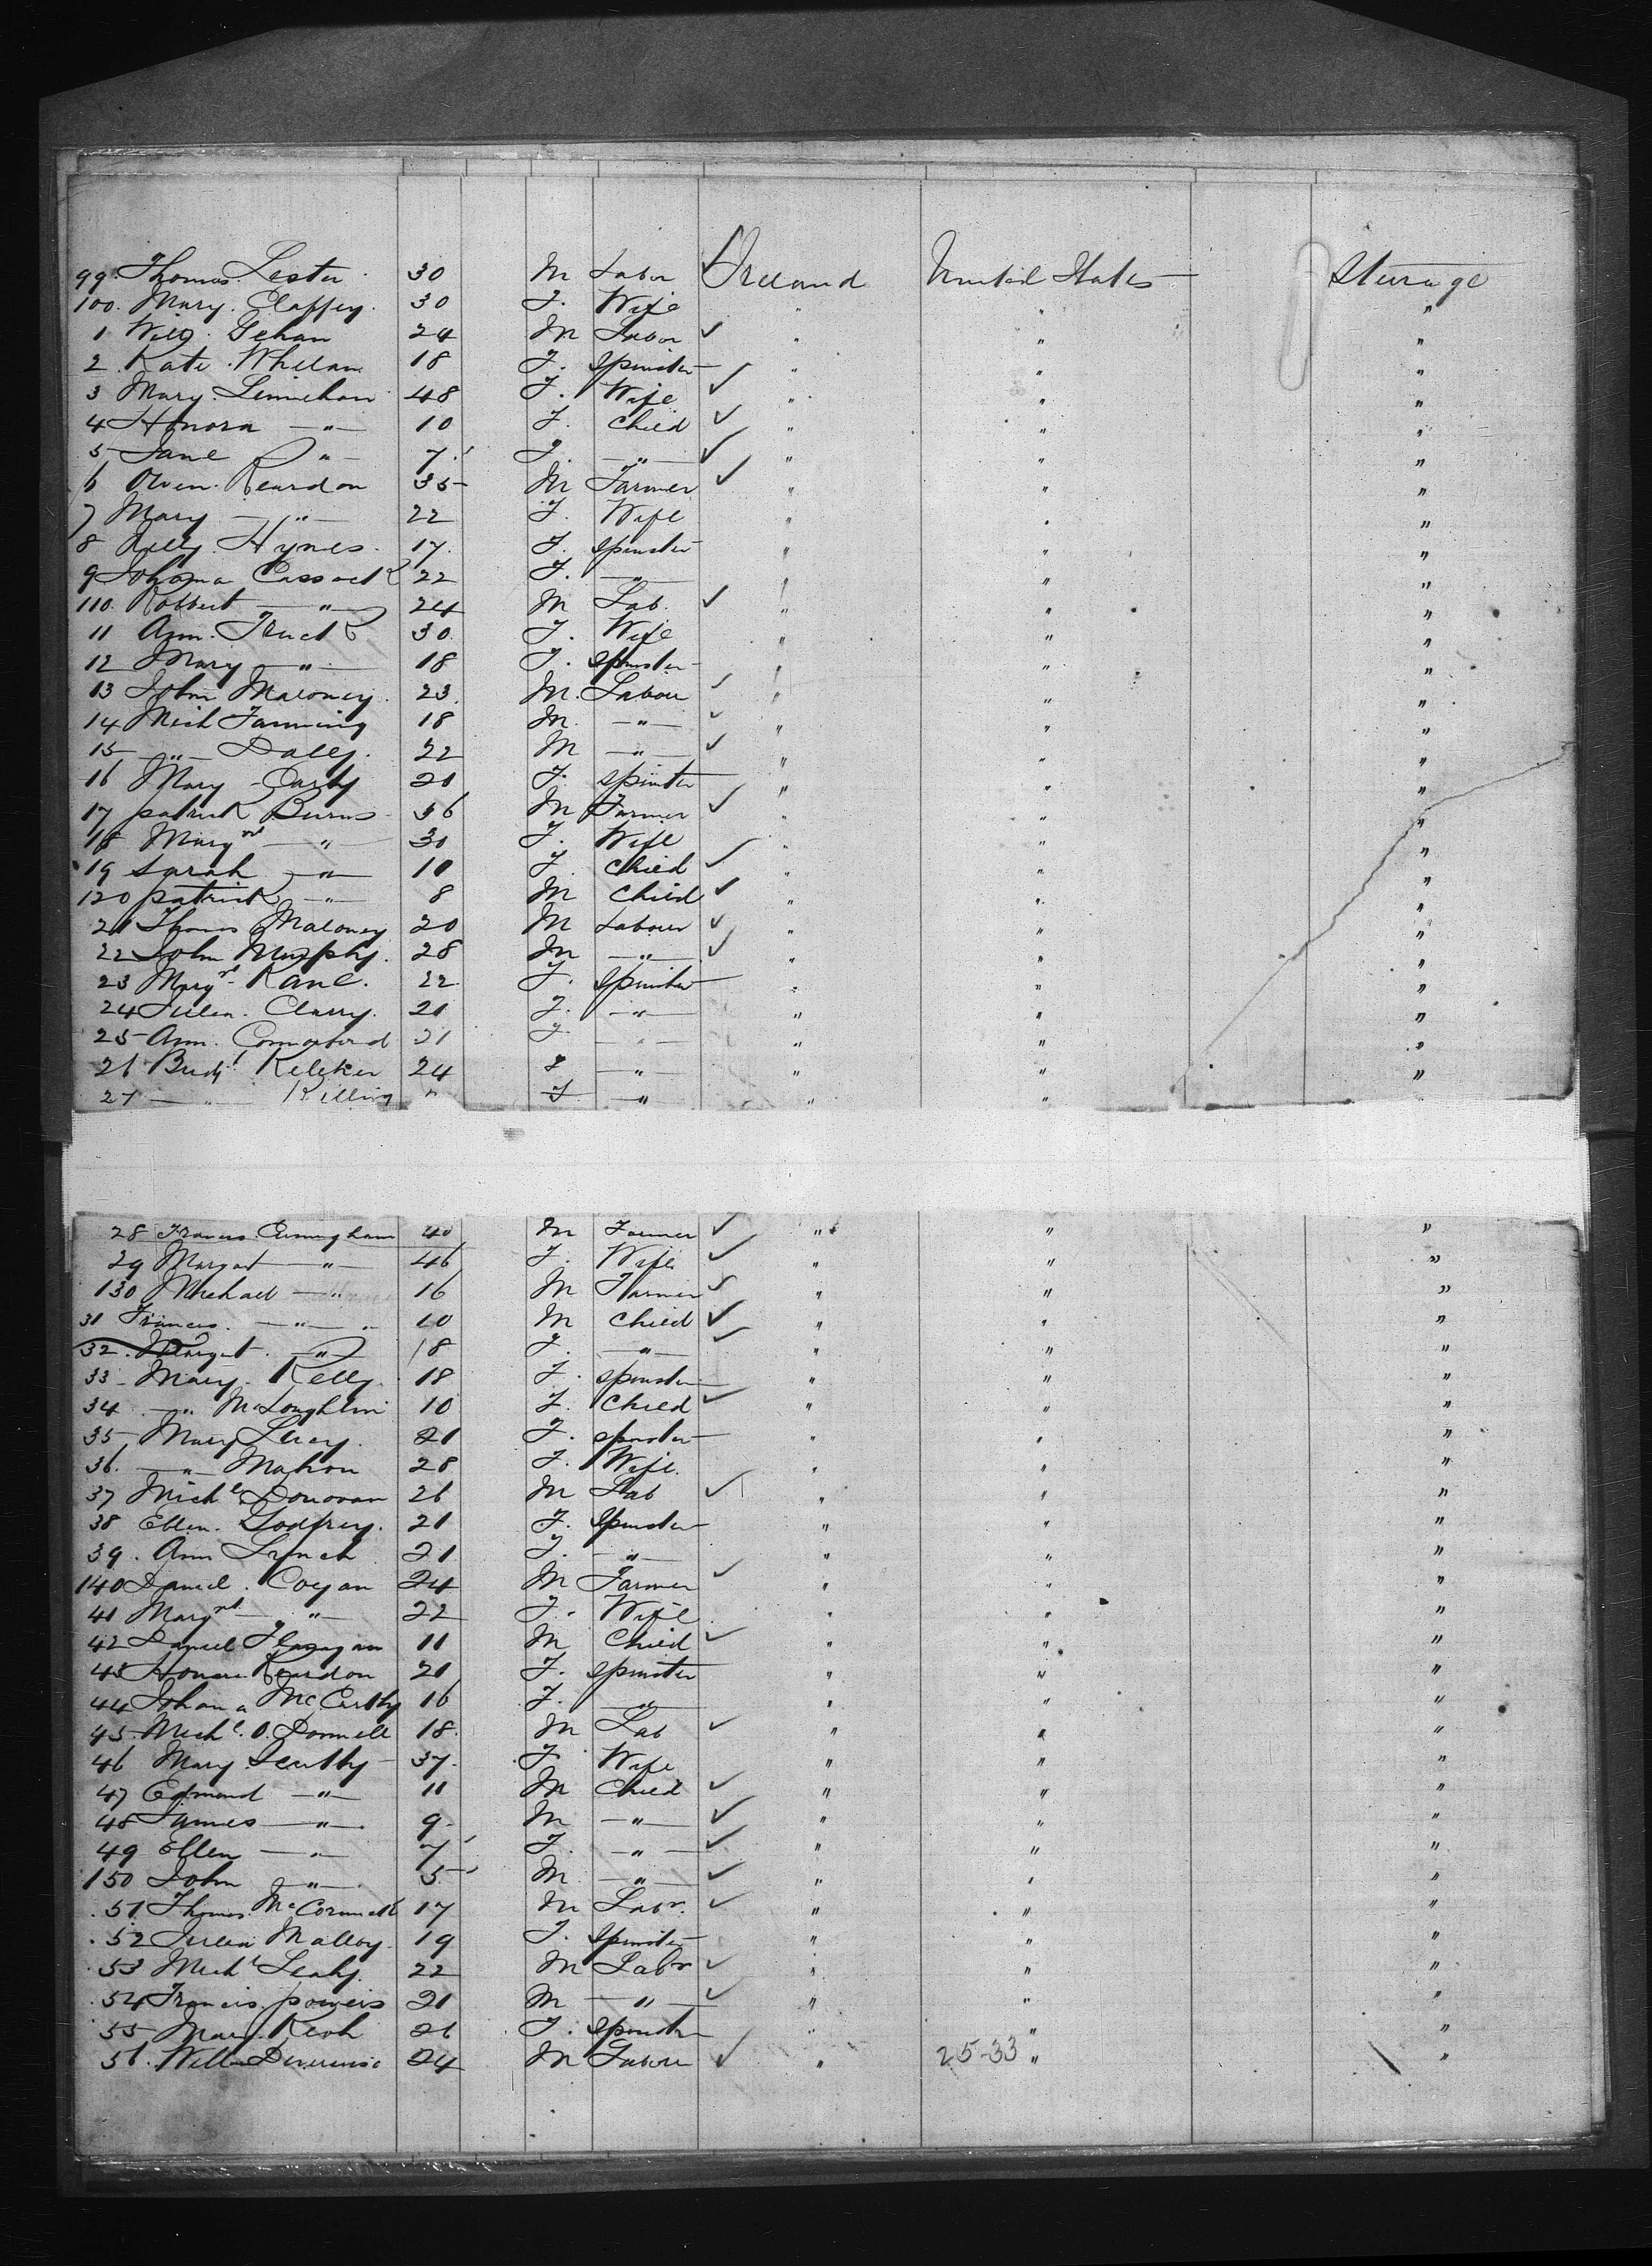 99. Thomas Lester 30 M Labor ✓ Ireland United States Sterage
100. Mary Claffey 30 F. Wife " " "
1 Will Gehan 24 M Labor ✓ " " "
2. Kate Whelan 18 F. Spinster " " "
3 Mary Linnehan 48 F. Wife ✓ " " "
4 Honora — " — 10 F. Child ✓ " " "
5 Jane " — 7 F. — " — ✓ " " "
6 Owen Reardon 35 M Farmer ✓ " " "
7 Mary — " — 22 F. Wife " " "
8 Hynes. 17. F. Spinster " " "
9 Johana Cassack 22 F. — " — " " "
110. Robbert — " — 24 M Lab. ✓ " " "
11 Ann. 30. F. Wife " " "
12 Mary — " — 18 F. Spinster " " "
13 John Maloney. 23. M. Labour ✓ " " "
14 Mich Fanning 18 M. — " — ✓ " " "
15 — " — Dally. 22 M — " — ✓ " " "
16 Mary 21 F. Spinster " " "
17 patrick Burns 36 M Farmer ✓ " " "
18 Margrt — " — 30 F. Wife " " "
19 Sarah — " — 10 F Child ✓ " " "
120 patrick — " — 8 M Child ✓ " " "
21 Thomas Maloney 20 M Labour ✓ " " "
22 John Murphy. 28 M — " — ✓ " " "
23 Margrt Kane. 22 F. Spinster " " "
24 Julia. Clarry. 21 F. — " — " " "
25 Ann. 21 F — " — " " "
26 Keleher 24 F — " — " " "
27 — " — Killing " F — " — " "
28 Francis Cuningham 40 M Farmer ✓ " " "
29 Margart — " — 46 F. Wife ✓ " " "
130 Michael — " — 16 M Farmer ✓ " " "
31 Francis. — " — 10 M Child ✓ " " "
32. Margart. — " — 18 F. — " — ✓ " " "
33 Mary. Kelly. 18 F. Spinster " " "
34 — " — McLoughlin 10 F. Child ✓ " " "
35 Mary 21 F. Spinster " " "
36. — " — Mahon 28 F. Wife. " " "
37 Michl Donovan 26 M Lab ✓ " " "
38 Ellen. Godfrey. 21 F. Spinster " " "
39. Ann Lynch 21 F. — " — " " "
140 Daniel. Cogan 24 M Farmer ✓ " " "
41 Margrt — " — 22 F. Wife " " "
42 Daniel Flanagan 11 M Child ✓ " " "
43 Reardon 21 F. Spinster " " "
44 Johana McCarthy 16 F. — " — " " "
45. Michl. O. Donnell 18. M Lab ✓ " " "
46 Mary 37. F. Wife " " "
47 Edmond — " — 11 M Child ✓ " " "
48 James — " — 9 M — " — ✓ " " "
49 Ellen — " — 7 F. — " — ✓ " " "
150 John — " — 5 M — " — ✓ " " "
51. Thomas. McCormack 17 M Labr. ✓ " " "
52 Julia Malloy 19 F. Spinster " " "
53 Michl Leahy. 22 M Labr ✓ " " "
54 Francis powers 21 M — " — ✓ " " "
55 Mary Keoh 26 F. Spinster " " "
56. Willm 24 M Labour ✓ " 25-33 " "